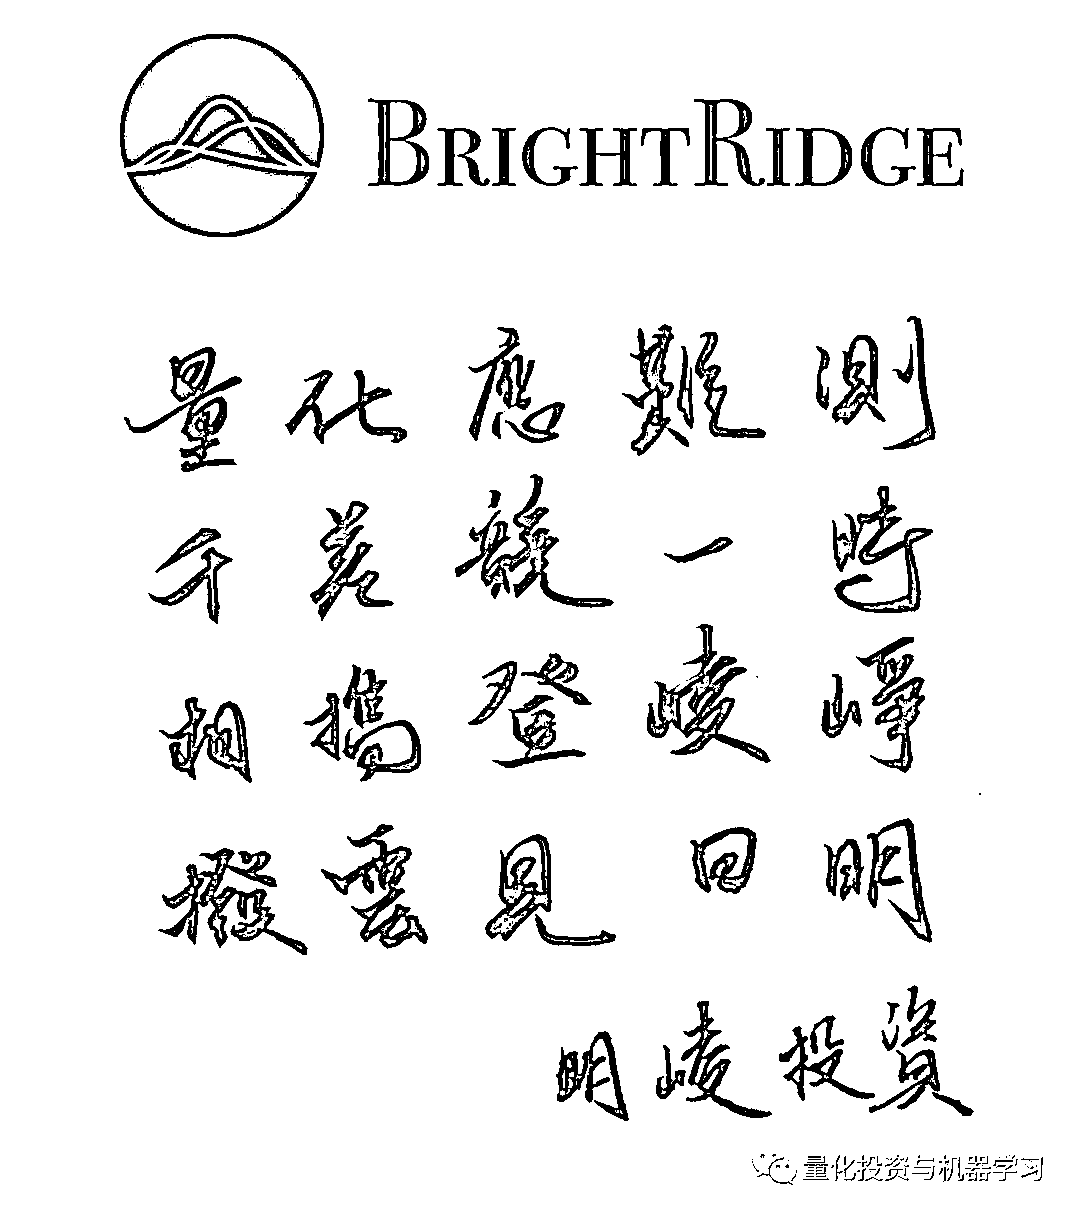 BRIGHTRIDGE
量化應難測
千花競一時
相攜登崚崢
撥雲見日明
明崚投資
量化投资与机器学习